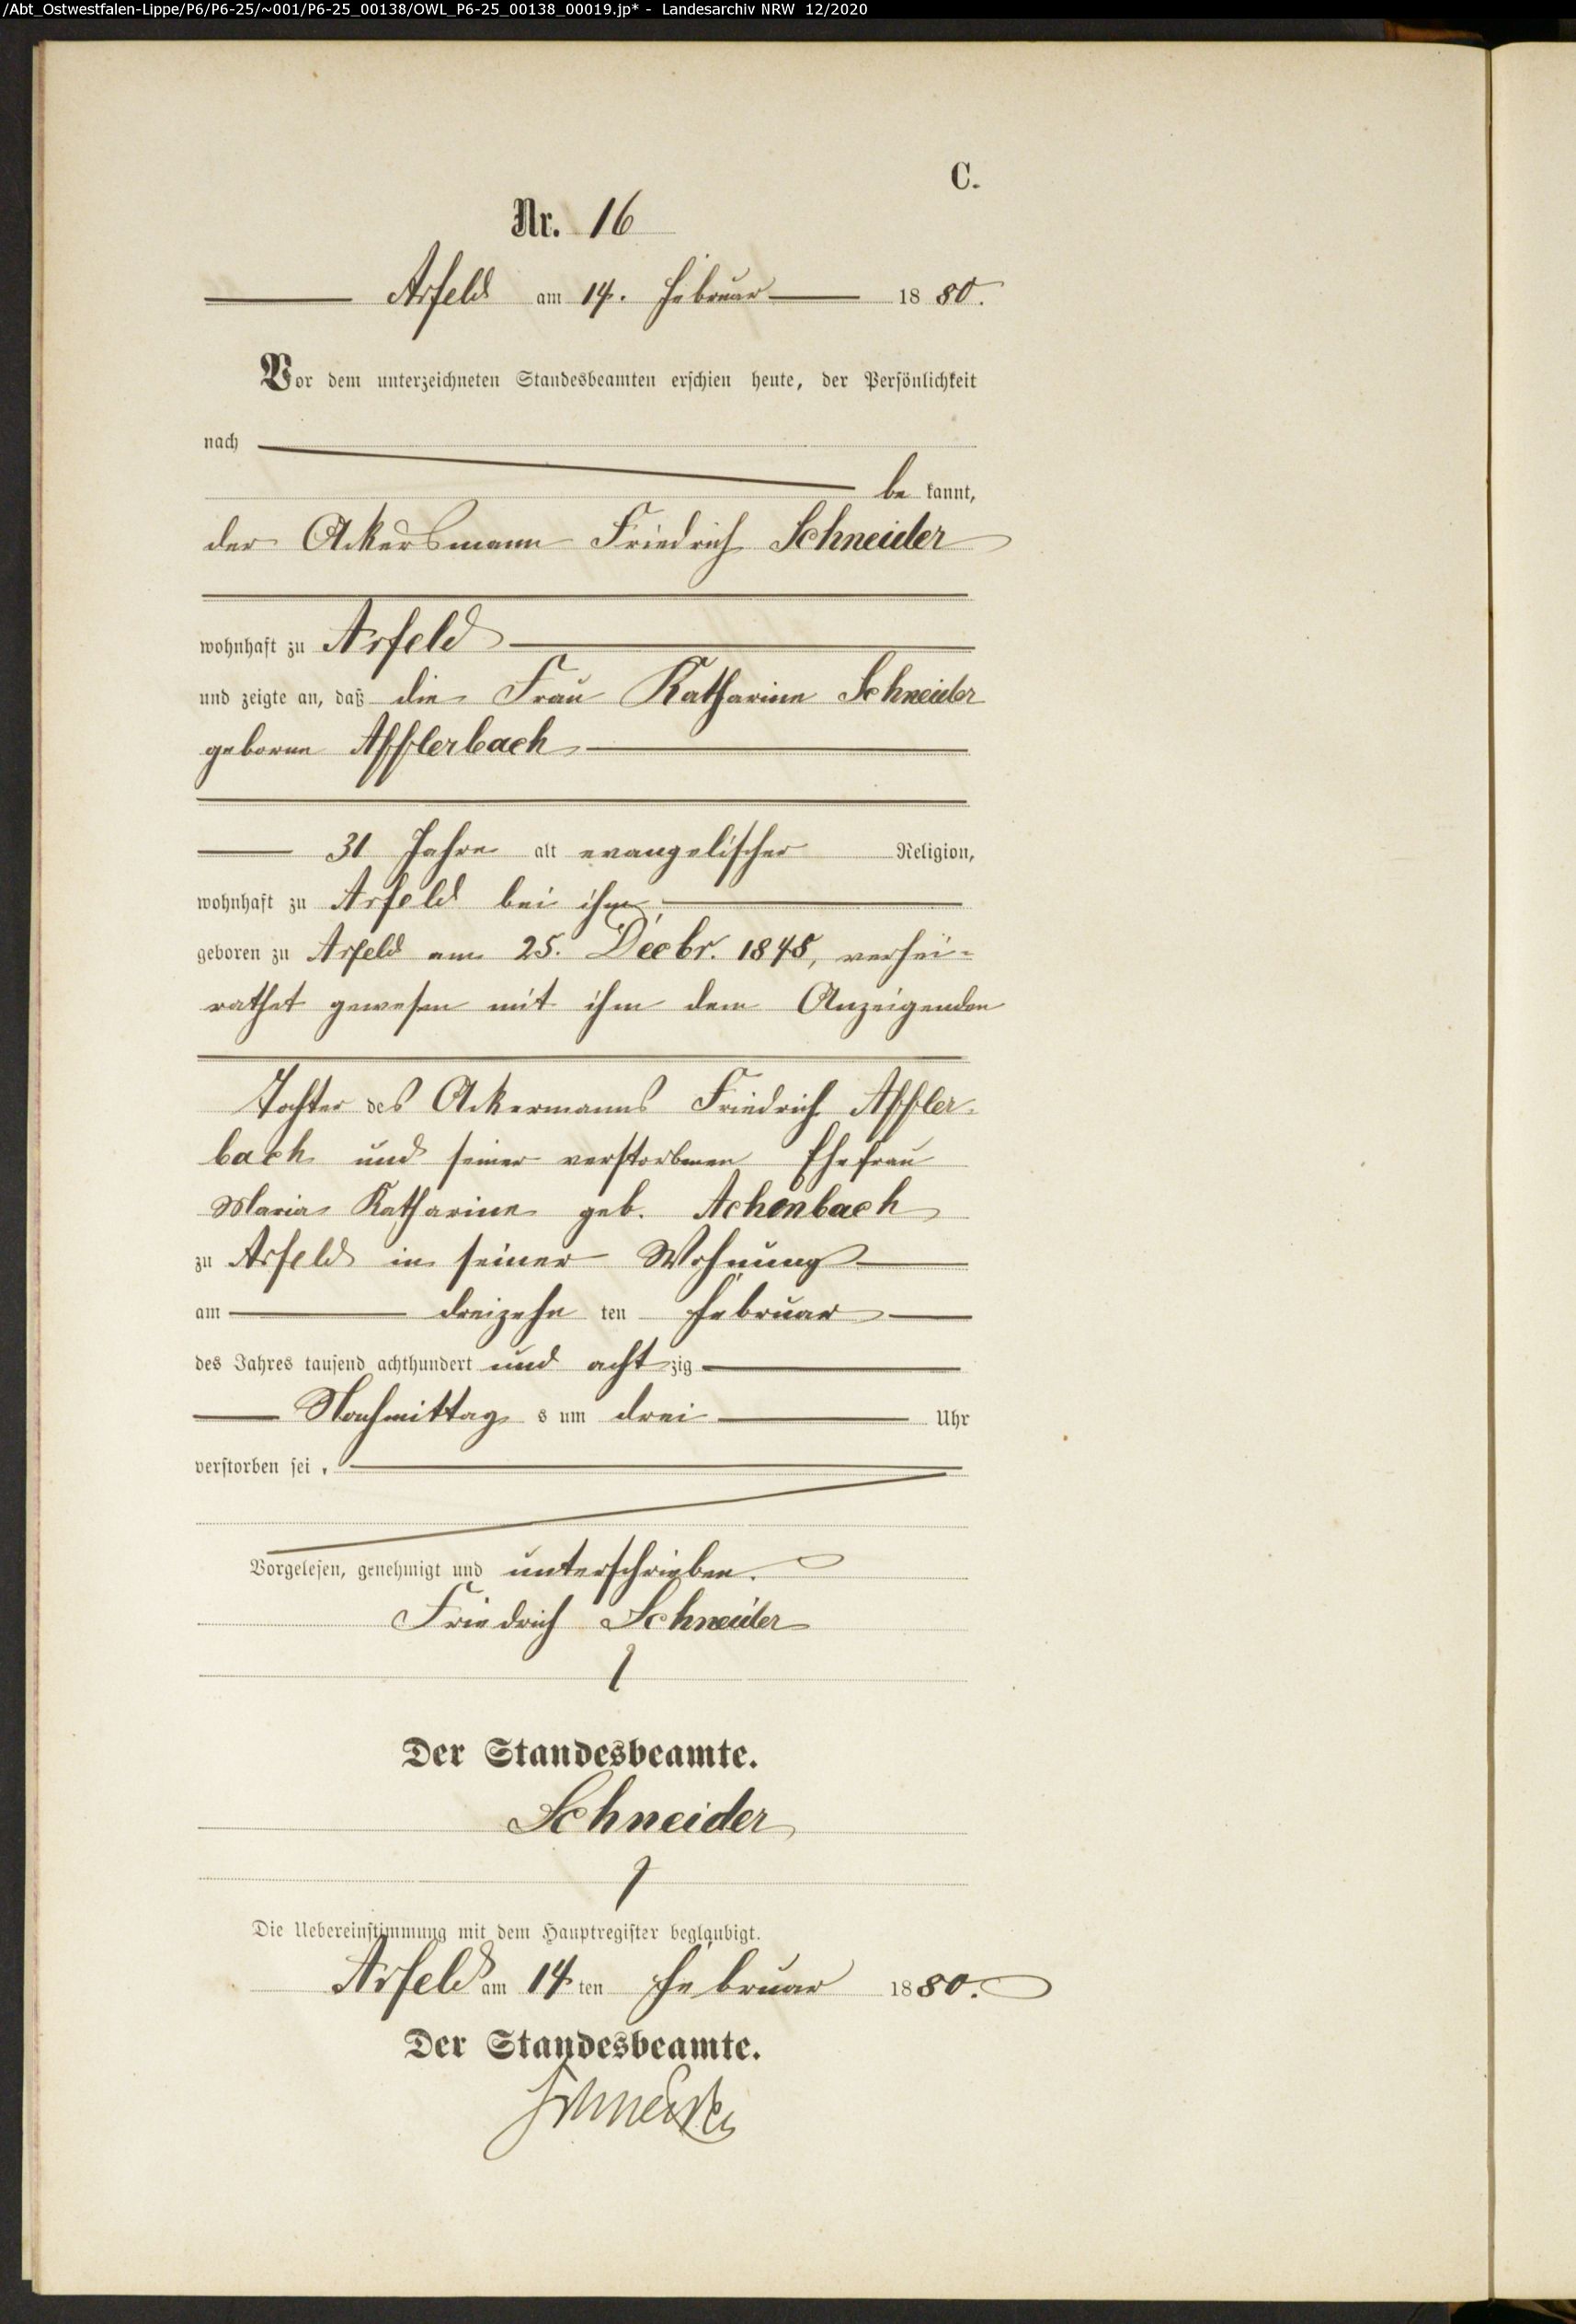 /Abt_Ostwestfalen-Lippe/P6/P6-25/~001/P6-25_00138/OWL_P6-25_00138_00019.jp* - Landesarchiv NRW 12/2020
C.
Nr. 16
Arfeld am 14. Februar 1880.
Vor dem unterzeichneten Standesbeamten erschien heute, der Persönlichkeit
nach
be kannt,
der Ackersmann Friedrich Schneider
wohnhaft zu Arfeld
und zeigte an, daß die Frau Katharine Schneider
geborne Afflerbach
31 Jahre alt evangelischer Religion,
wohnhaft zu Arfeld bei ihm,
geboren zu Arfeld am 25. Decbr. 1848, verhei-
rathet gewesen mit ihm dem Anzeigenden
Tochter des Ackermanns Friedrich Affler-
bach und seiner verstorbenen Ehefrau
Maria Katharine geb. Achenbach
zu Arfeld in seiner Wohnung
am dreizehn ten Februar
des Jahres tausend achthundert und achtzig
Nachmittag s um drei Uhr
verstorben sei.
Vorgelesen, genehmigt und unterschrieben.
Friedrich Schneider
Der Standesbeamte.
Schneider
Die Uebereinstimmung mit dem Hauptregister beglaubigt.
Arfeld am 14ten Februar 1880.
Der Standesbeamte.
Schneider